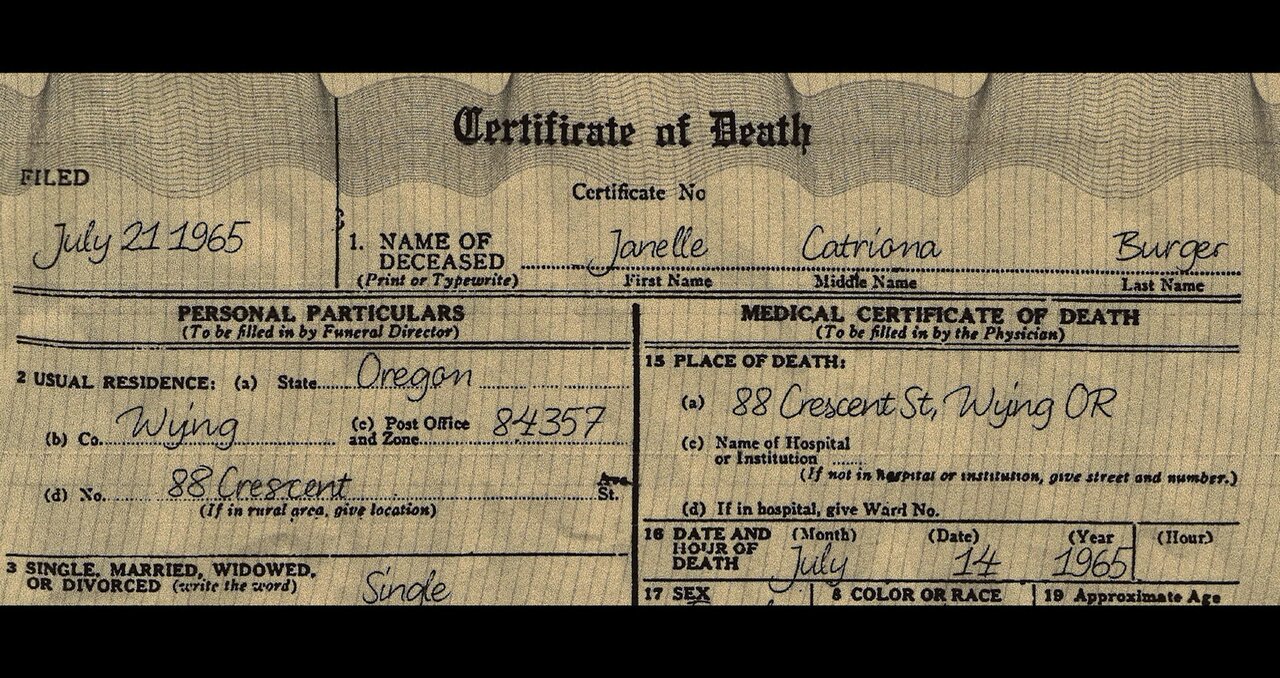 Certificate of Death
FILED
Certificate No
July 21 1965
1. NAME OF DECEASED Janelle Catriona Burger
(Print or Typewrite) First Name Middle Name Last Name
PERSONAL PARTICULARS
(To be filled in by Funeral Director)
2 USUAL RESIDENCE: (a) State Oregon
(b) Co. Wying (c) Post Office and Zone 84357
(d) No. 88 Crescent Ave. St.
(If in rural area, give location)
3 SINGLE, MARRIED, WIDOWED,
OR DIVORCED (write the word) Single
MEDICAL CERTIFICATE OF DEATH
(To be filled in by the Physician)
15 PLACE OF DEATH:
(a) 88 Crescent St, Wying OR
(c) Name of Hospital
or Institution
(If not in hospital or institution, give street and number.)
(d) If in hospital, give Ward No.
16 DATE AND HOUR OF DEATH (Month) (Date) (Year (Hour)
July 14 1965
17 SEX 8 COLOR OR RACE 19 Approximate Age